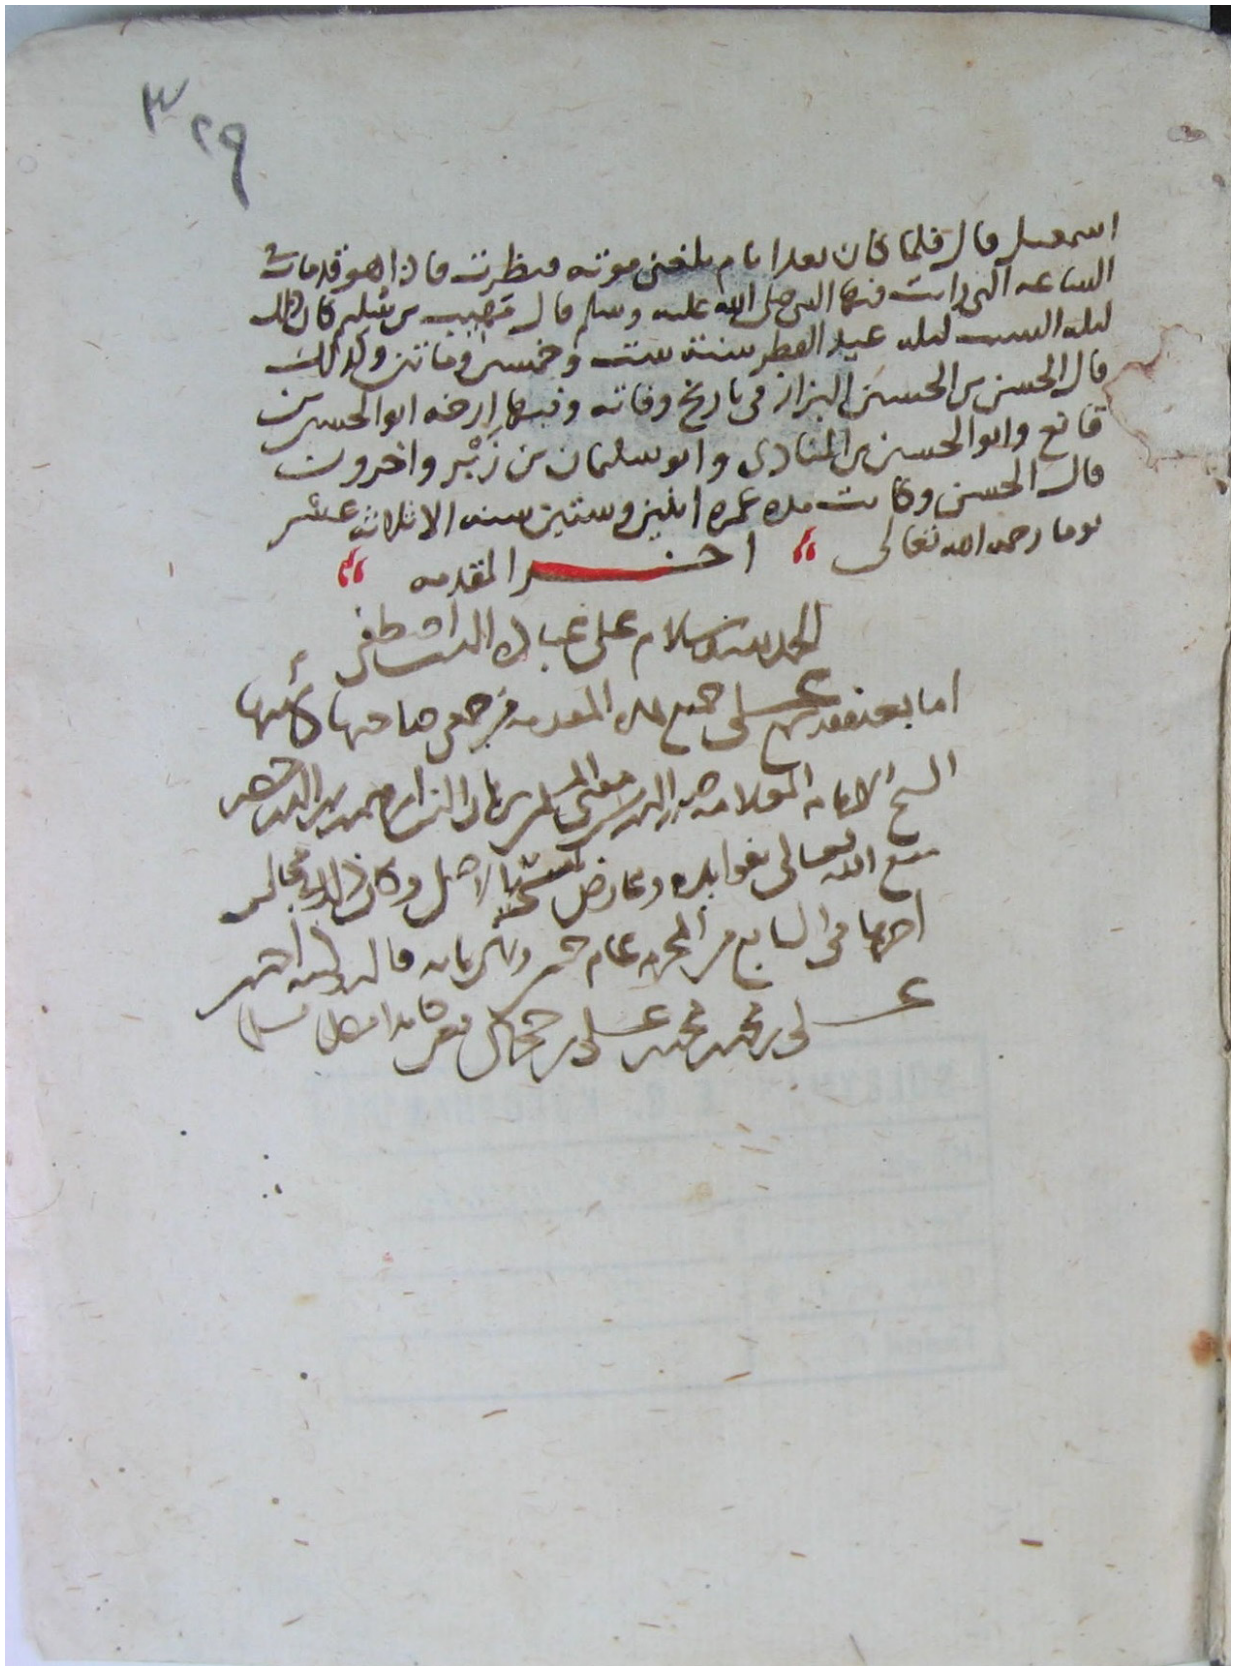 ٣٢٩
اسمعيل قال فلما كان بعد ايام بلغني موته فنظرت فاذا هو قد مات في
الساعه التي رايت فيها النبي صلى الله عليه وسلم قال مهيب بن سليم كان ذلك
ليله السبت ليله عيد الفطر سنة ست وخمسين وماتين وكذلك
قال الحسن بن الحسين البزاز في تاريخ وفاته وفيها ارخه ابو الحسين بن
قانع وابو الحسين بن المنادى وابو سليمان بن زبر واخرون
قال الحسن وكانت مده عمره اثنين وستين سنه الا ثلاث عشر
يوما رحمه الله تعالى اخر المقدمه
الحمد لله وسلام على عباده الذين اصطفى
اما بعد فقد سمع على جميع هذه المقدمه من صاحبها كاتبها
الشيخ الامام العلامه الدين محمد
نفع الله تعالى بفوايده وعارض نسخته بالاصل وكان ذلك في مجالس
اخرها في السابع من المحرم عام وثمانمايه قاله وكتبه احمد
على بن محمد بن محمد بن على بن حجر